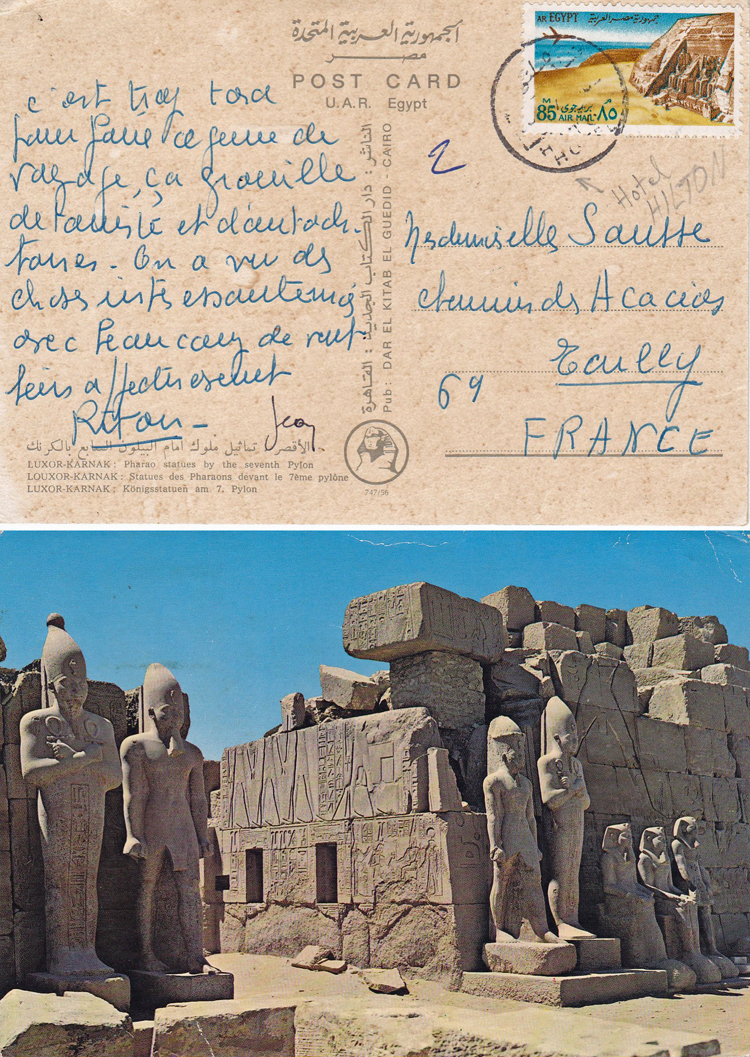 الجمهورية العربية المتحدة
مصر
POST CARD
U.A.R. Egypt
AR EGYPT جمهورية مصر العربية
M
85 بريد جوى ٨٥
AIR MAIL
Hotel
HILTON
2
c'est trop tard
pour faire ce genre de
voyage, ça grouille
de touriste et d'autochtones
tones. On a vu des
choses intéressantes mais
avec beaucoup de
affectueusement
Riton - Jean
Mesdemoiselles Sautte
chemin des Acacias
69 Ecully
FRANCE
الناشر : دار الكتاب الجديد : القاهرة
Pub: DAR EL KITAB EL GUEDID - CAIRO
الأقصر - تماثيل ملوك أمام البيلون السابع بالكرنك
LUXOR-KARNAK : Pharao statues by the seventh Pylon
LOUXOR-KARNAK : Statues des Pharaons devant le 7ème pylône
LUXOR-KARNAK : Königsstatuen am 7. Pylon
747/56